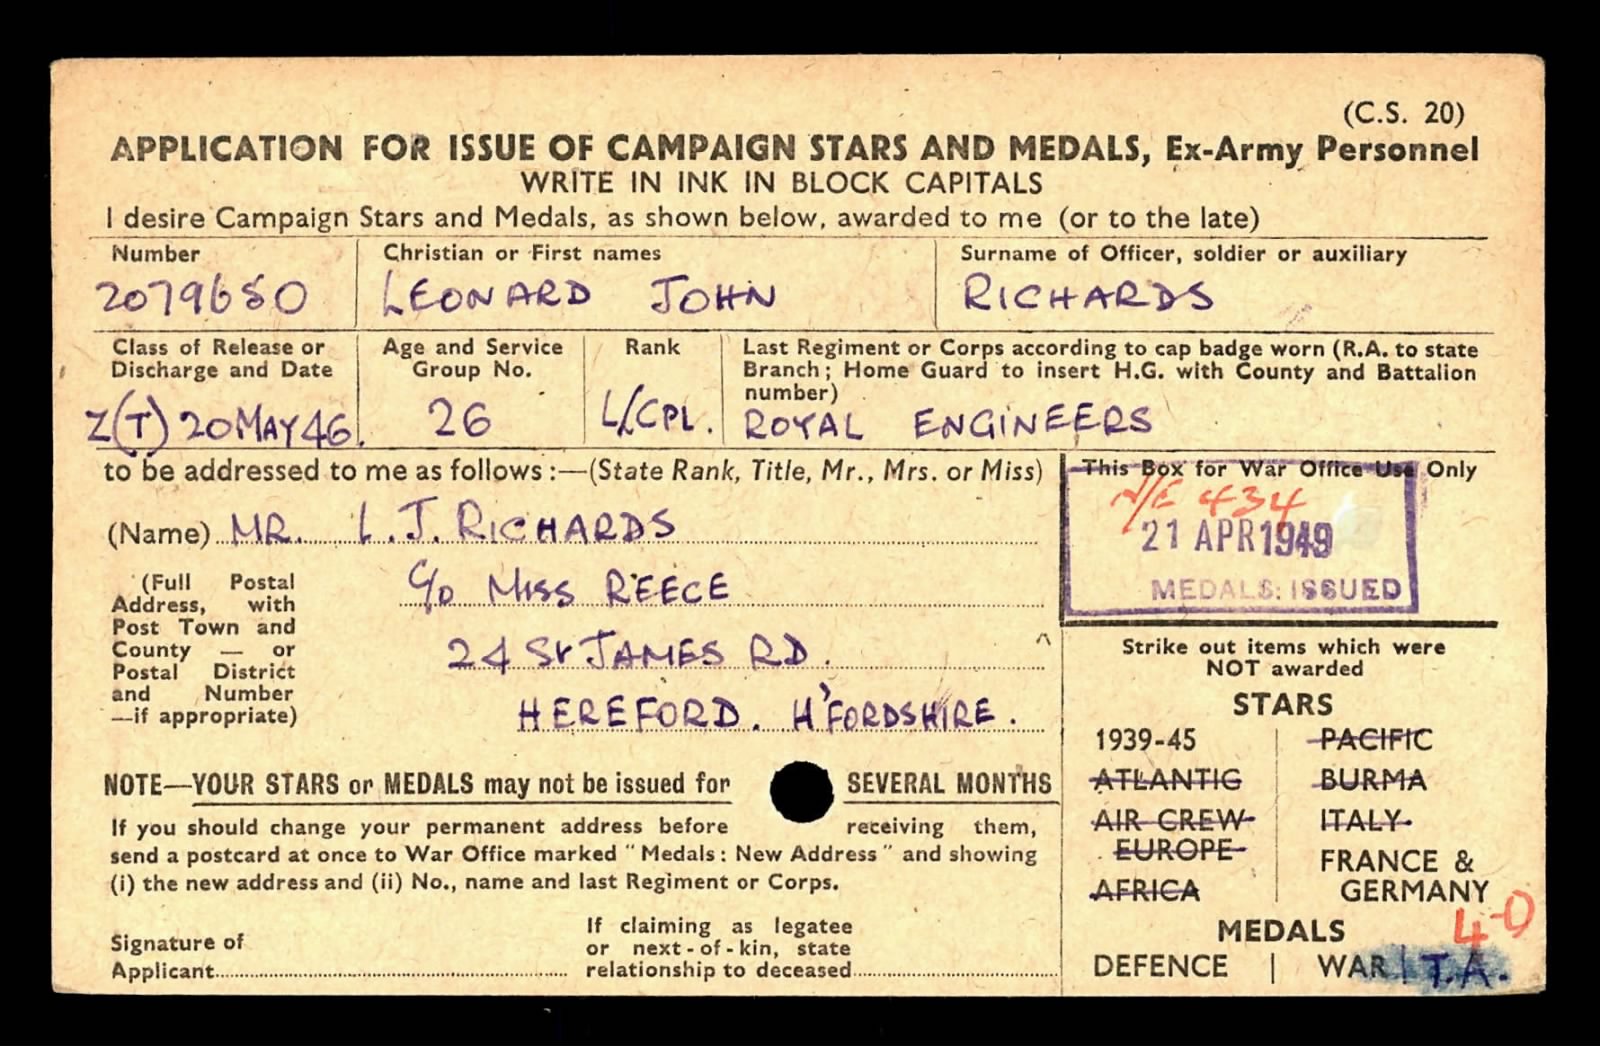 (C.S. 20)
APPLICATION FOR ISSUE OF CAMPAIGN STARS AND MEDALS, Ex-Army Personnel
WRITE IN INK IN BLOCK CAPITALS
I desire Campaign Stars and Medals, as shown below, awarded to me (or to the late)
Number
2079650
Christian or First names
LEONARD JOHN
Surname of Officer, soldier or auxiliary
RICHARDS
Class of Release or
Discharge and Date
Z(T) 20 MAY 46.
Age and Service
Group No.
26
Rank
L/CPL.
Last Regiment or Corps according to cap badge worn (R.A. to state
Branch; Home Guard to insert H.G. with County and Battalion
number)
ROYAL ENGINEERS
to be addressed to me as follows :—(State Rank, Title, Mr., Mrs. or Miss)
(Name) MR. L. J. RICHARDS
(Full Postal
Address, with
Post Town and
County — or
Postal District
and Number
—if appropriate)
C/o MISS REECE
24 ST JAMES RD.
HEREFORD. H'FORDSHIRE.
This Box for War Office Use Only
N/E 434
21 APR 1949
MEDALS: ISSUED
NOTE—YOUR STARS or MEDALS may not be issued for SEVERAL MONTHS
If you should change your permanent address before receiving them,
send a postcard at once to War Office marked "Medals: New Address" and showing
(i) the new address and (ii) No., name and last Regiment or Corps.
Signature of
Applicant
If claiming as legatee
or next-of-kin, state
relationship to deceased
Strike out items which were
NOT awarded
STARS
1939-45
ATLANTIC
AIR CREW
EUROPE
AFRICA
PACIFIC
BURMA
ITALY
FRANCE &
GERMANY
4-0
MEDALS
DEFENCE | WAR | T.A.